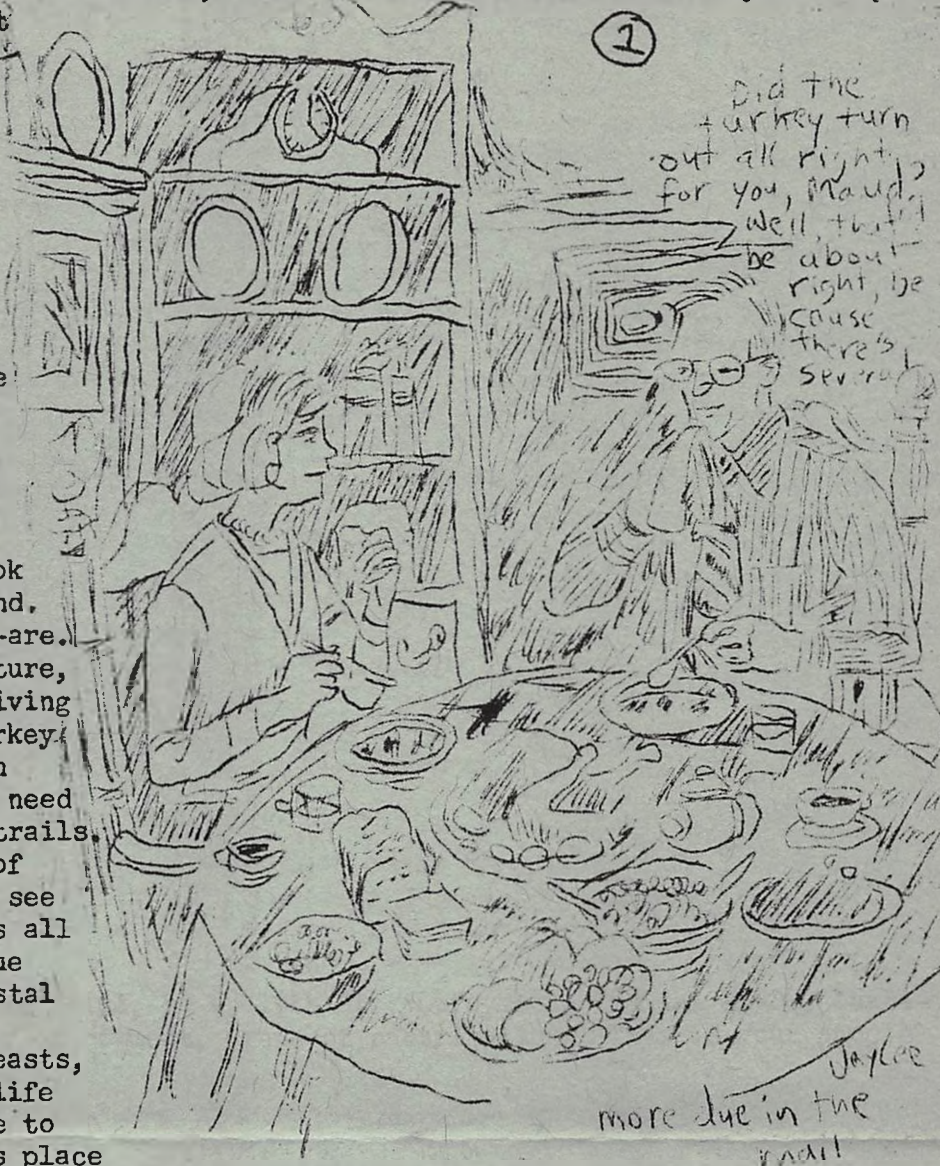 t
1
Did the
turkey turn
out all right,
for you, Maud,
Well, that'll
be about
right, be
cause
there's
several
e
ok
nd,
-are.
ture,
iving
rkey
n
need
trails.
of
see
s all
ue
stal
easts,
life
e to
s place
Jaylee
more due in the
mail